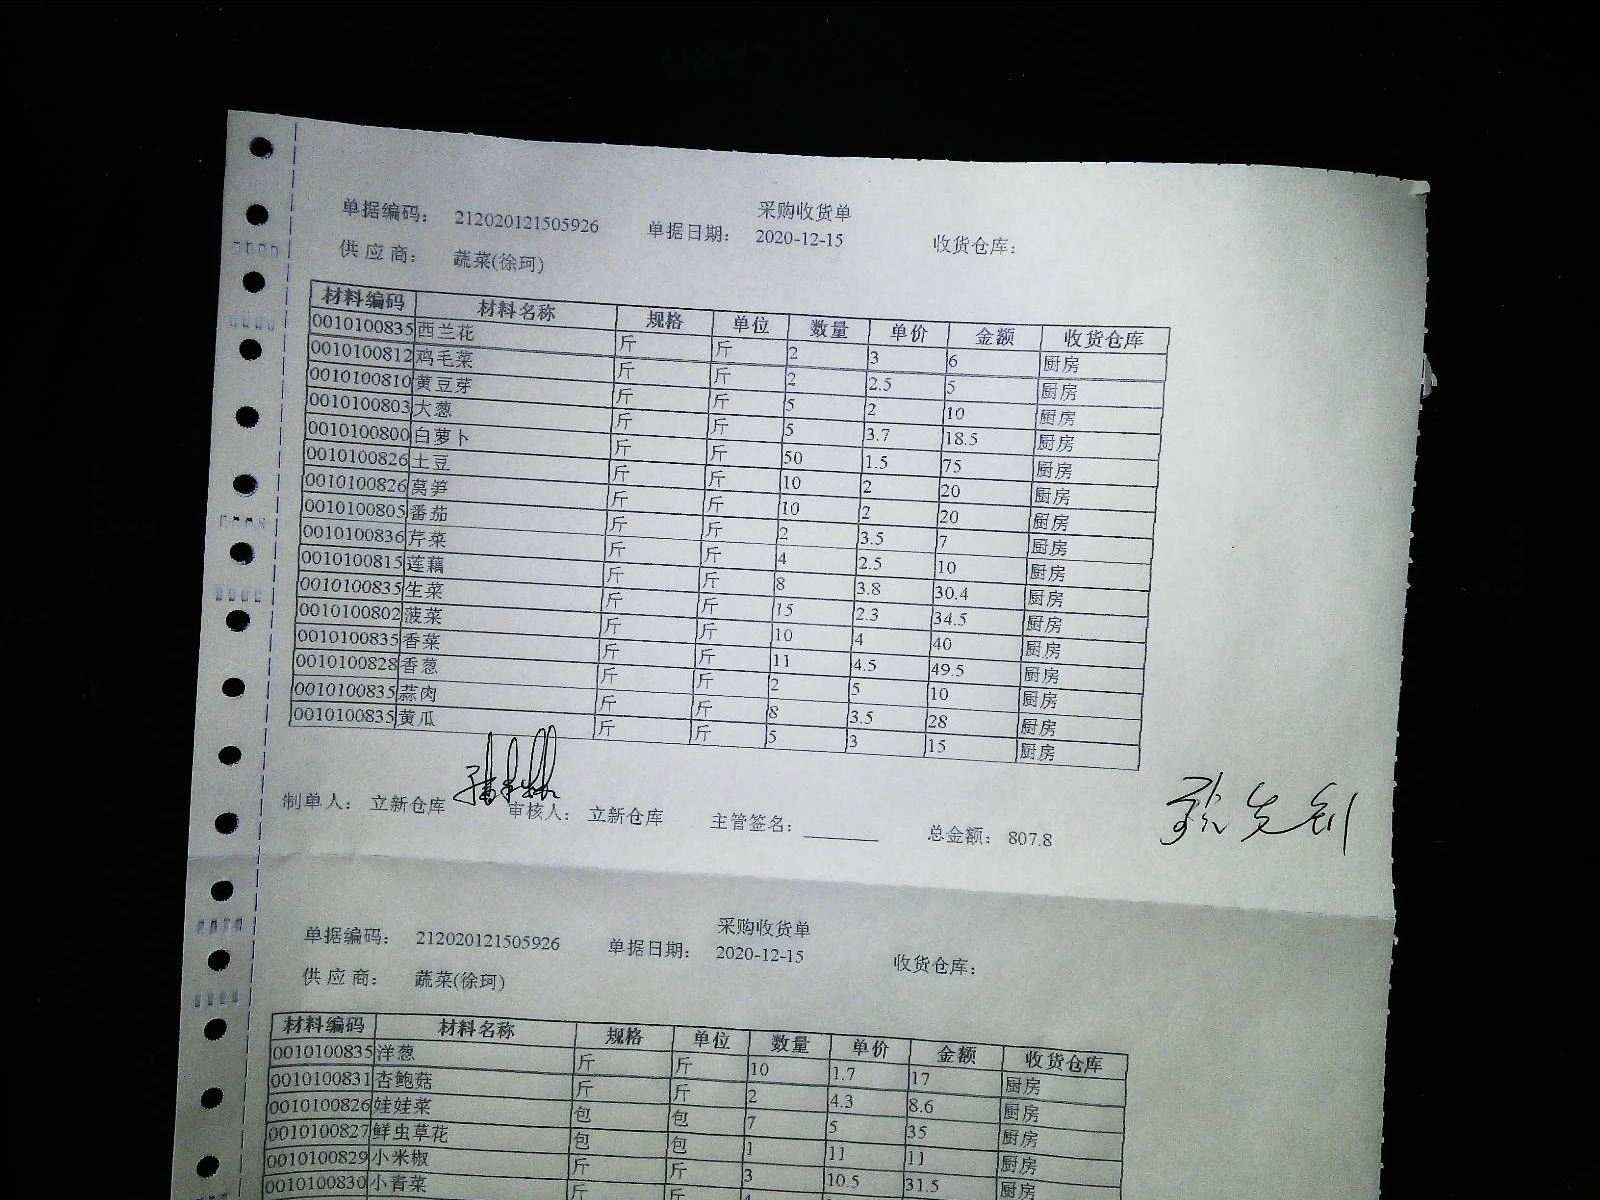 采购收货单
单据编码： 212020121505926 单据日期： 2020-12-15 收货仓库：
供 应 商： 蔬菜(徐珂)
材料编码 材料名称 规格 单位 数量 单价 金额 收货仓库
0010100835 西兰花 斤 斤 2 3 6 厨房
0010100812 鸡毛菜 斤 斤 2 2.5 5 厨房
0010100810 黄豆芽 斤 斤 5 2 10 厨房
0010100803 大葱 斤 斤 5 3.7 18.5 厨房
0010100800 白萝卜 斤 斤 50 1.5 75 厨房
0010100826 土豆 斤 斤 10 2 20 厨房
0010100826 莴笋 斤 斤 10 2 20 厨房
0010100805 番茄 斤 斤 2 3.5 7 厨房
0010100836 芹菜 斤 斤 4 2.5 10 厨房
0010100815 莲藕 斤 斤 8 3.8 30.4 厨房
0010100835 生菜 斤 斤 15 2.3 34.5 厨房
0010100802 菠菜 斤 斤 10 4 40 厨房
0010100835 香菜 斤 斤 11 4.5 49.5 厨房
0010100828 香葱 斤 斤 2 5 10 厨房
0010100835 蒜肉 斤 斤 8 3.5 28 厨房
0010100835 黄瓜 斤 斤 5 3 15 厨房
制单人： 立新仓库 审核人： 立新仓库 主管签名： 总金额： 807.8
采购收货单
单据编码： 212020121505926 单据日期： 2020-12-15 收货仓库：
供 应 商： 蔬菜(徐珂)
材料编码 材料名称 规格 单位 数量 单价 金额 收货仓库
0010100835 洋葱 斤 斤 10 1.7 17 厨房
0010100831 杏鲍菇 斤 斤 2 4.3 8.6 厨房
0010100826 娃娃菜 包 包 7 5 35 厨房
0010100827 鲜虫草花 包 包 1 11 11 厨房
0010100829 小米椒 斤 斤 3 10.5 31.5 厨房
0010100830 小青菜 斤 斤